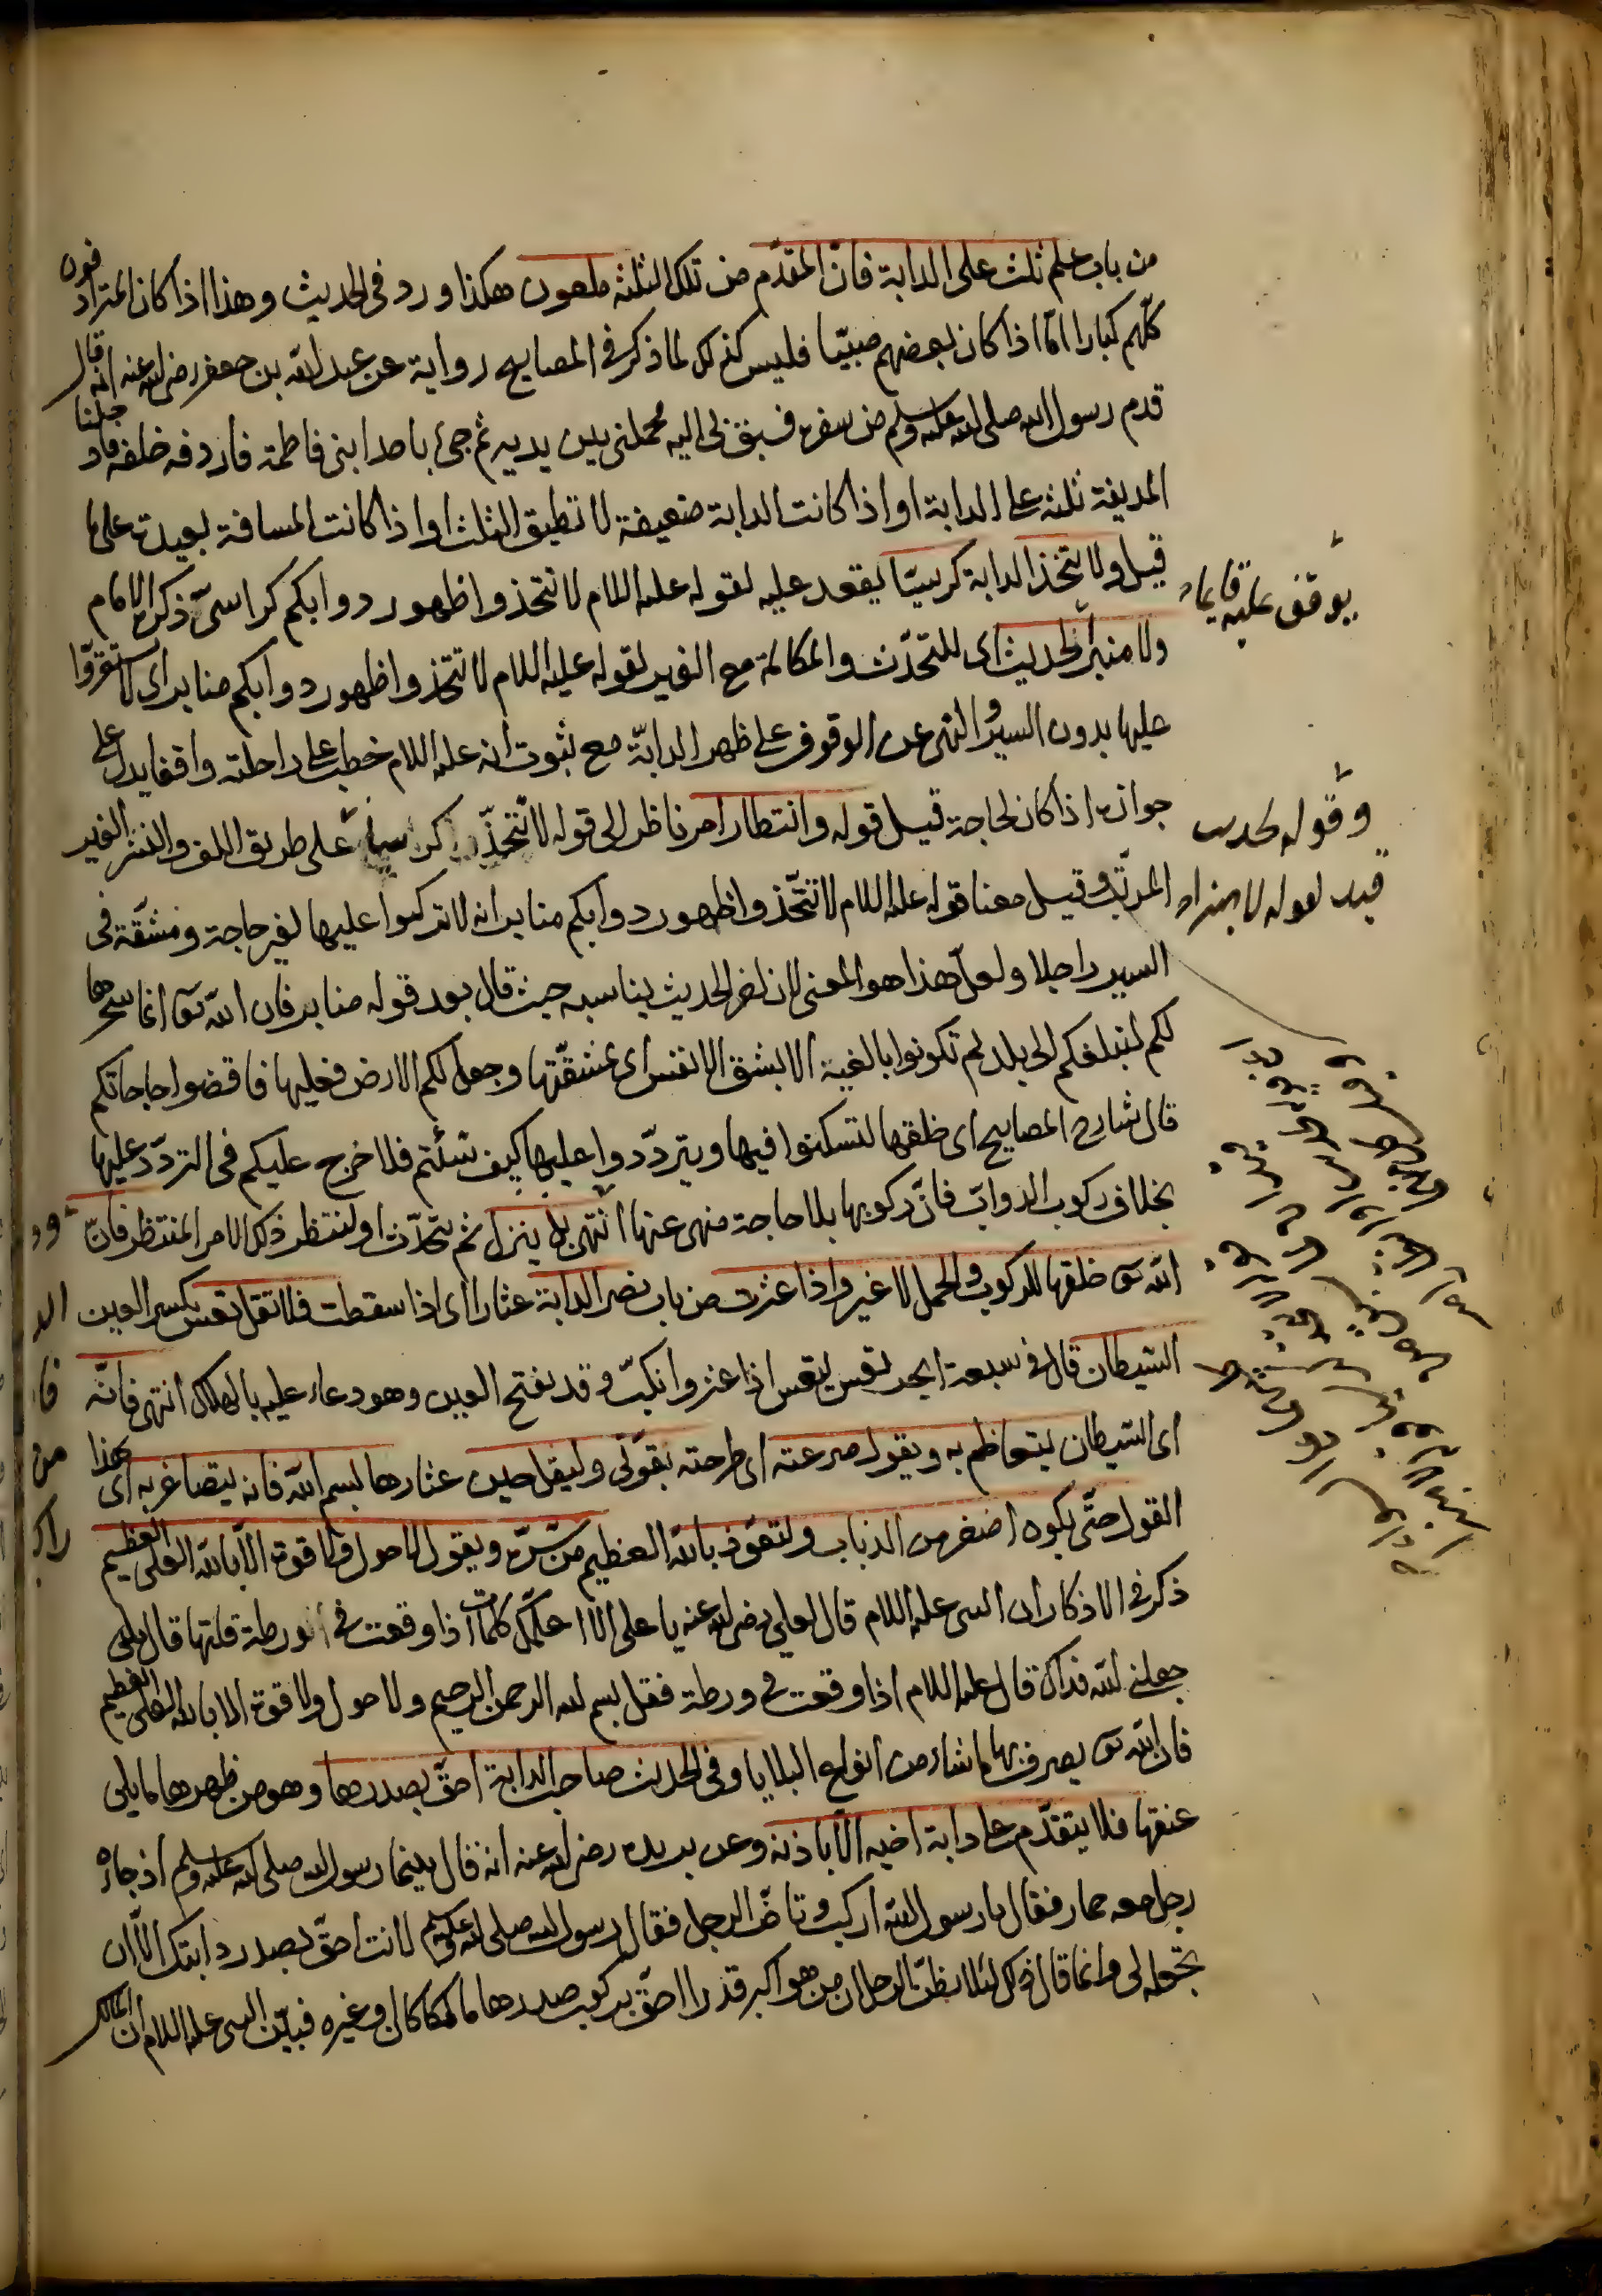 من باب علم ثلث على الدابة فان المتقدّم من تلك الثلثة ملعون هكذا ورد فى الحديث وهذا اذا كان المترادفون
كلّهم كبارا امّا اذا كان بعضهم صبيّا فليس كذلك لما ذكر فى المصابيح رواية عن عبد الله بن جعفر رضى الله عنه انه قال
قدم رسول الله صلى الله عليه وسلم من سفره فسبق بى اليه فحملنى بين يديه ثم جئ باحد ابنى فاطمة فاردفه خلفه فادخلنا
المدينة ثلثة على الدابة او اذا كانت الدابة ضعيفة لا تطيق الثلث او اذا كانت المسافة بعيدة على ما
قيل ولا يتّخذ الدابة كرسيّا يقعد عليه لقوله عليه السلام لا تتخذوا ظهور دوابكم كراسىّ ذكره الامام
ولا منبر الحديث اى للتحدّث والمكالمة مع الغير لقوله عليه السلام لا تتخذوا ظهور دوابكم منابر اى لا تقرّوا
عليها بدون السير والنهى عن الوقوف على ظهر الدابّة مع ثبوت انه عليه السلام خطب على راحلته واقفا يدل على
جوازه اذا كان لحاجة قيل قوله وانتظار امر ناظر الى قوله لا تتّخذ كرسيا على طريق اللف والنشر الغير
المرتّب وقيل معنا قوله عليه السلام لا تتّخذوا ظهور دوابكم منابر انه لا تركبوا عليها لغير حاجة ومشقّة فى
السير راجلا ولعل هذا هو المعنى لان اخر الحديث يناسبه حيث قال بعد قوله منابر فان الله تعا انما سخرها
لكم لتبلغكم الى بلد لم تكونوا بالغيه الا بشق الانفس اى بمشقّتها وجعل لكم الارض فعليها فاقضوا حاجاتكم
قال شارح المصابيح اى خلقها لتسكنوا فيها ويتردّدوا عليها كيف شئتم فلا حرج عليكم فى التردّد عليها
بخلاف ركوب الدوابّ فانّ ركوبها بلا حاجة منهى عنها انتهى بل ينزل ثم يتحدّث او لينتظر ذلك الامر المنتظر فانّ
الله تعا خلقها للركوب والحمل لا غير واذا عثرت من باب نصر الدابة عثارا اى اذا سقطت فلا تقل تعس بكسر العين
الشيطان قال فى سبعة ابحر تعس يتعس اذا عثر وانكبّ وقد يفتح العين وهو دعاء عليه بالهلاك انتهى فانّه
اى الشيطان ليتعاظم به ويقول صرعته اى طرحته بقوّتى وليقل حين عثارها بسم الله فانه يتصاغر به اى بهذا
القول حتّى يكون اصغر من الذباب وليتعوّذ بالله العظيم من شرّه ويقول لا حول ولا قوة الّا بالله العلى العظيم
ذكر فى الاذكار ان النبى عليه السلام قال لعلى رضى الله عنه يا على الا اعلّمك كلمات اذا وقعت فى ورطة قلتها قال بلى
جعلنى الله فداك قال عليه السلام اذا وقعت فى ورطة فقل بسم الله الرحمن الرحيم ولا حول ولا قوة الا بالله العلى العظيم
فان الله تعا يصرف بها ما شاء من انواع البلايا وفى الحديث صاحب الدابة احقّ بصدرها وهو من ظهرها ما يلى
عنقها فلا يتقدّم على دابة اخيه الّا باذنه وعن بريده رضى الله عنه انه قال بينما رسول الله صلى الله عليه وسلم اذ جاءه
رجل معه حمار فقال يا رسول الله اركب وتاخّر الرجل فقال رسول الله صلى الله عليه وسلم لا انت احقّ بصدر دابتك الّا ان
تجعله لى وانما قال ذلك لئلا يظنّ الرجل ان من هو اكبر قدرا احقّ بركوب صدرها مالكا كان او غيره فبيّن النبى عليه السلام ان المالك
يوقف عليه قايما
وقوله لحديث